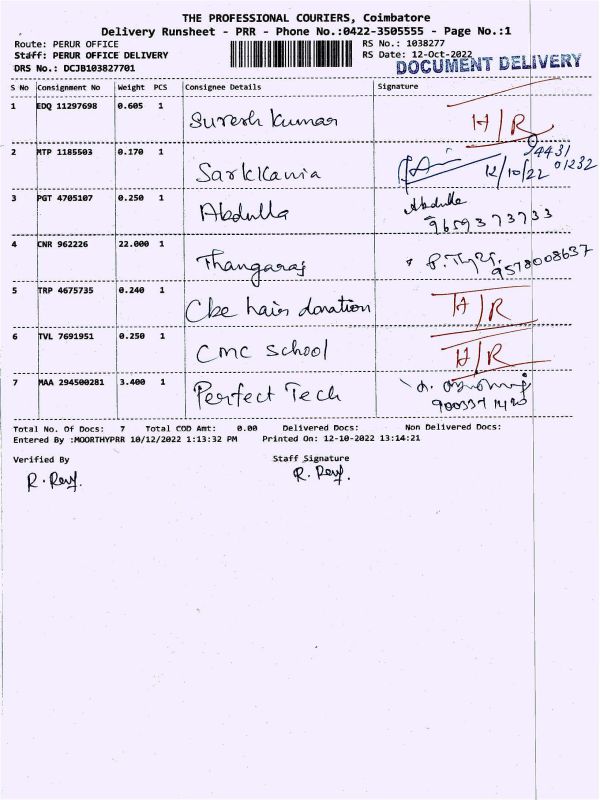 THE PROFESSIONAL COURIERS, Coimbatore
Delivery Runsheet - PRR - Phone No.:0422-3505555 - Page No.:1
Route: PERUR OFFICE RS No.: 1038277
Staff: PERUR OFFICE DELIVERY RS Date: 12-Oct-2022
DOCUMENT DELIVERY
DRS No.: DCJB103827701
S No Consignment No Weight PCS Consignee Details Signature
1 EDQ 11297698 0.605 1 Suresh Kumar H/R
2 MTP 1185503 0.170 1 12/10/22
3 PGT 4705107 0.250 1 Abdulla Abdulla
9659373733
4 CNR 962226 22.000 1 Thangaraj
9578008637
5 TRP 4675735 0.240 1 Cbe hair donation H/R
6 TVL 7691951 0.250 1 CMC School H/R
7 MAA 294500281 3.400 1 Perfect Tech
Total No. Of Docs: 7 Total COD Amt: 0.00 Delivered Docs: Non Delivered Docs:
Entered By :MOORTHYPRR 10/12/2022 1:13:32 PM Printed On: 12-10-2022 13:14:21
Verified By Staff Signature